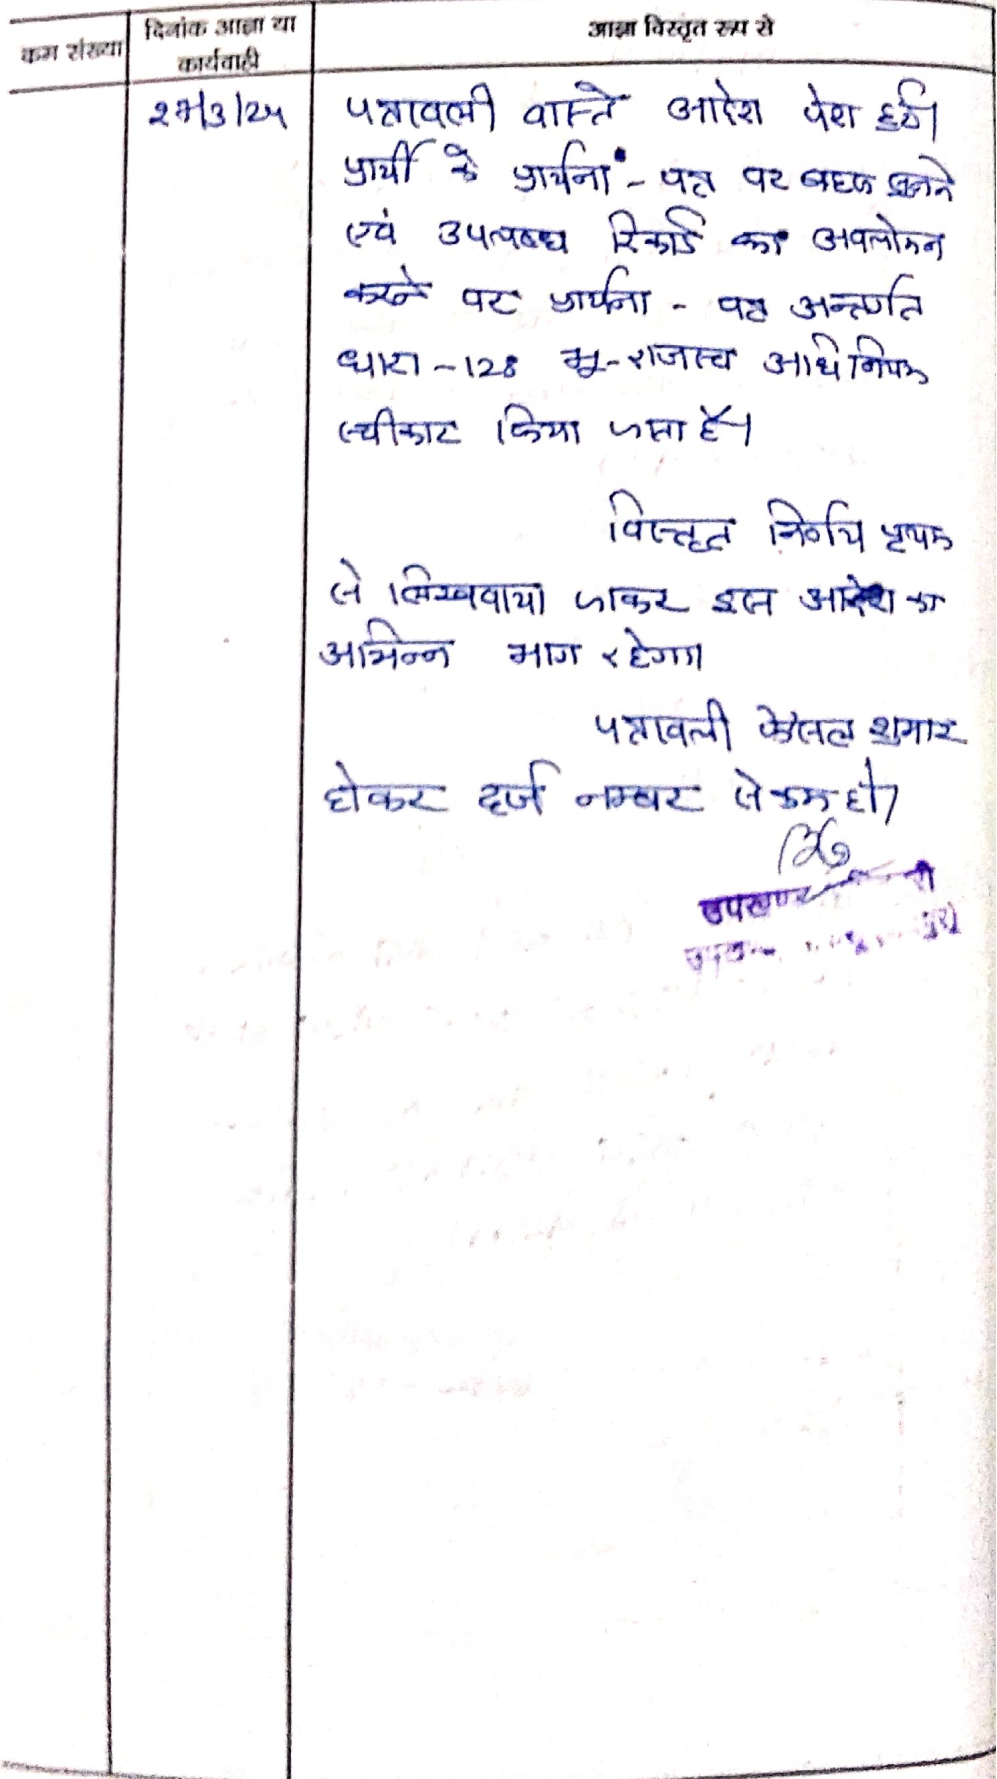 क्रम संख्या
दिनांक आज्ञा या
कार्यवाही
आज्ञा विस्तृत रूप से
पत्रावली वास्ते आदेश पेश हुई।
प्रार्थी के प्रार्थना - पत्र पर बहस सुनने
एवं उपलब्ध रिकार्ड का अवलोकन
करने पर प्रार्थना - पत्र अन्तर्गत
धारा - 128 भू-राजस्व अधिनियम
स्वीकार किया जाता है।
विस्तृत निर्णय पृथक
से लिखवाया जाकर इस आदेश का
अभिन्न भाग रहेगा।
पत्रावली फैसल शुमार
होकर दर्ज नम्बर से कम हो।
उपखण्ड